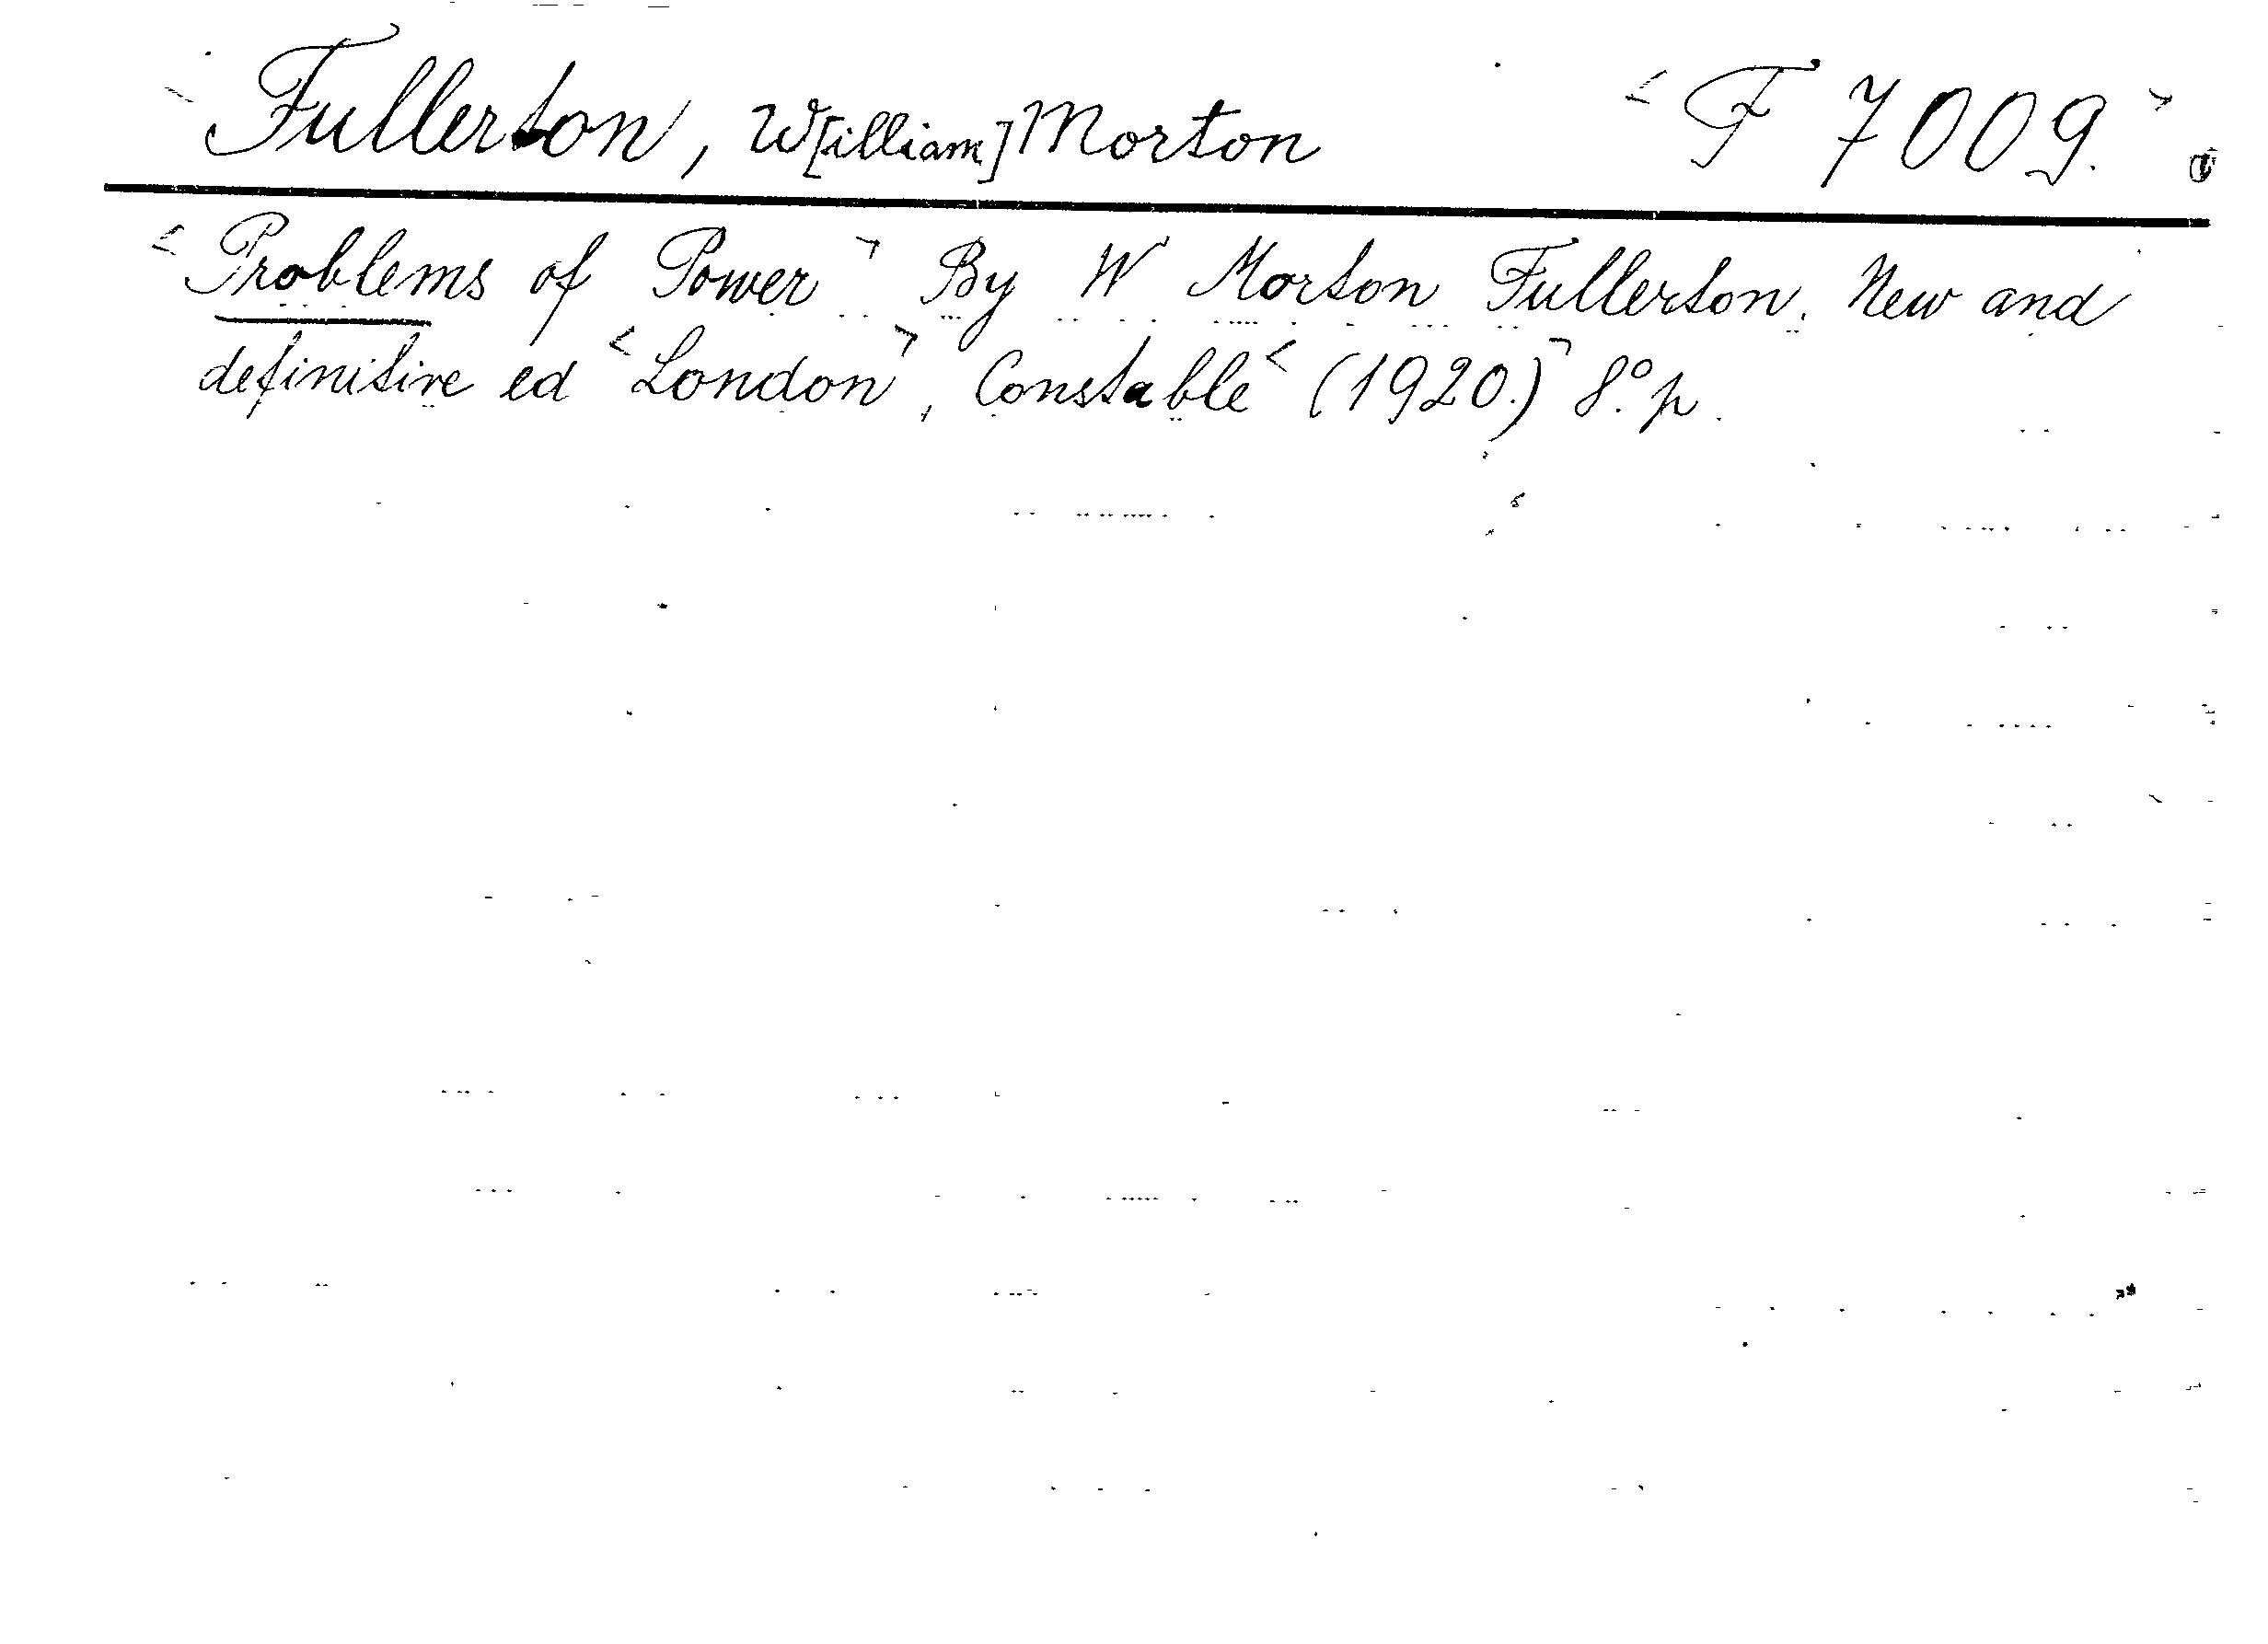 Fullerton, W[illiam] Morton F 7009.
Problems of Power By W Morton Fullerton. New and
definitive ed London, Constable (1920.) 8.º p.